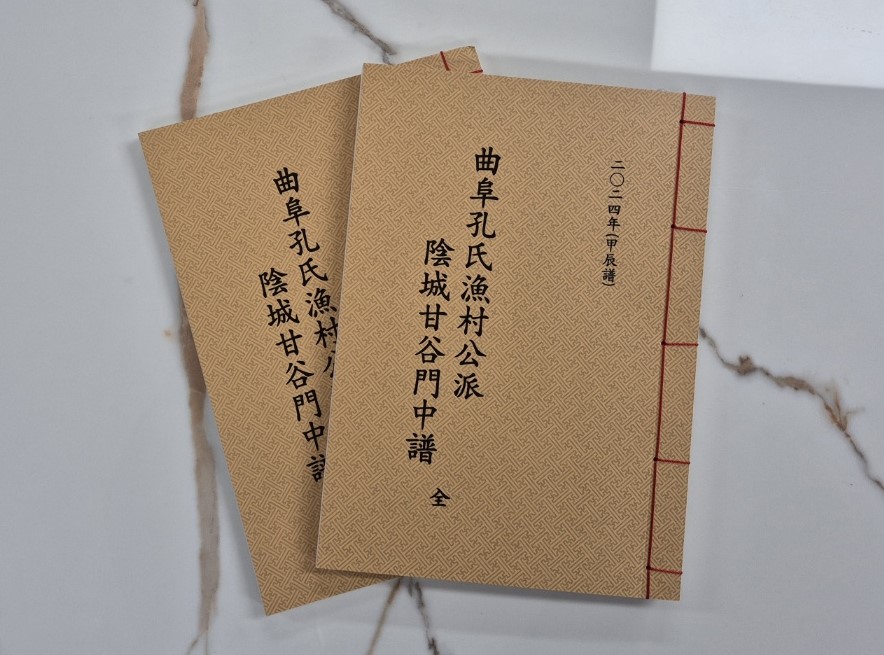 二〇二四年(甲辰譜)
曲阜孔氏漁村公派
陰城甘谷門中譜 全
曲阜孔氏漁村公
陰城甘谷門中譜